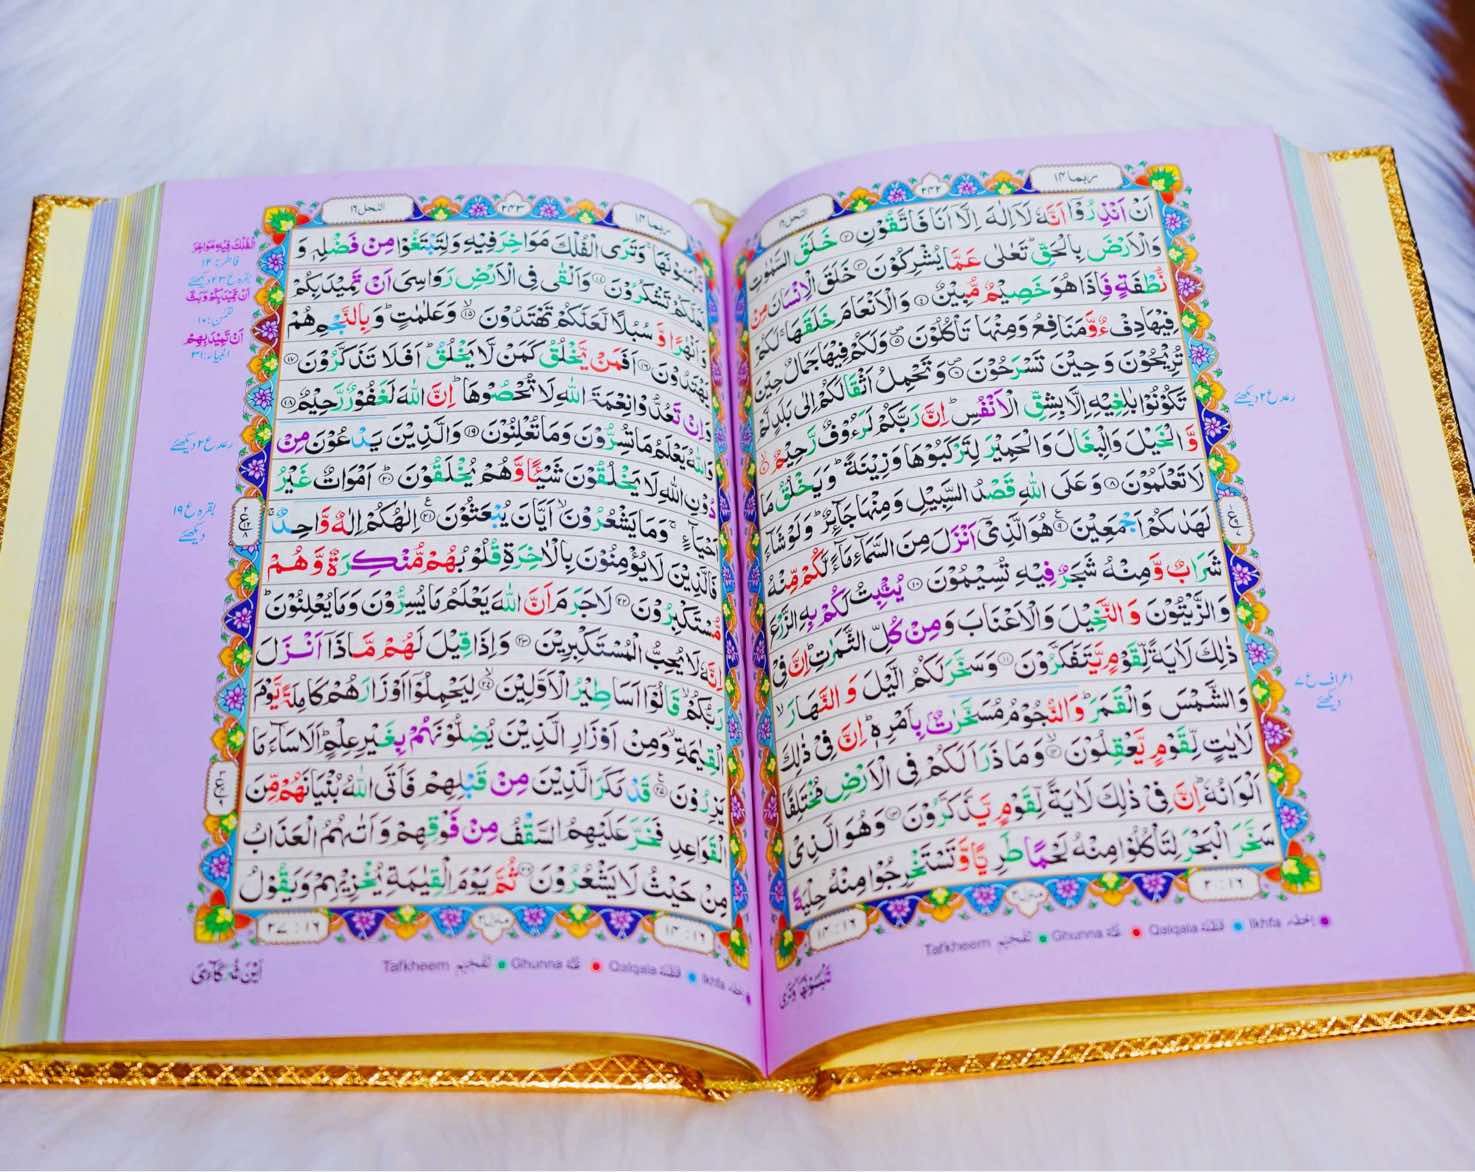 ربما ۱۴
۲۴۲
النحل ۱۶
اَنْ اَنْذِرُوْۤا اَنَّهٗ لَاۤ اِلٰهَ اِلَّاۤ اَنَا فَاتَّقُوْنِ ۝۲ خَلَقَ السَّمٰوٰتِ
وَالْاَرْضَ بِالْحَقِّ ؕ تَعٰلٰى عَمَّا يُشْرِكُوْنَ ۝۳ خَلَقَ الْاِنْسَانَ مِنْ
نُّطْفَةٍ فَاِذَا هُوَ خَصِيْمٌ مُّبِيْنٌ ۝۴ وَالْاَنْعَامَ خَلَقَهَا ۚ لَكُمْ
فِيْهَا دِفْءٌ وَّمَنَافِعُ وَمِنْهَا تَاْكُلُوْنَ ۝۵ وَلَكُمْ فِيْهَا جَمَالٌ حِيْنَ
تُرِيْحُوْنَ وَحِيْنَ تَسْرَحُوْنَ ۝۶ وَتَحْمِلُ اَثْقَالَكُمْ اِلٰى بَلَدٍ لَّمْ
تَكُوْنُوْا بٰلِغِيْهِ اِلَّا بِشِقِّ الْاَنْفُسِ ؕ اِنَّ رَبَّكُمْ لَرَءُوْفٌ رَّحِيْمٌ ۝۷
وَّالْخَيْلَ وَالْبِغَالَ وَالْحَمِيْرَ لِتَرْكَبُوْهَا وَزِيْنَةً ؕ وَيَخْلُقُ مَا
لَا تَعْلَمُوْنَ ۝۸ وَعَلَى اللّٰهِ قَصْدُ السَّبِيْلِ وَمِنْهَا جَآئِرٌ ؕ وَلَوْ شَآءَ
لَهَدٰىكُمْ اَجْمَعِيْنَ ۝۹ هُوَ الَّذِيْۤ اَنْزَلَ مِنَ السَّمَآءِ مَآءً لَّكُمْ مِّنْهُ
شَرَابٌ وَّمِنْهُ شَجَرٌ فِيْهِ تُسِيْمُوْنَ ۝۱۰ يُنْۢبِتُ لَكُمْ بِهِ الزَّرْعَ
وَالزَّيْتُوْنَ وَالنَّخِيْلَ وَالْاَعْنَابَ وَمِنْ كُلِّ الثَّمَرٰتِ ؕ اِنَّ فِيْ
ذٰلِكَ لَاٰيَةً لِّقَوْمٍ يَّتَفَكَّرُوْنَ ۝۱۱ وَسَخَّرَ لَكُمُ الَّيْلَ وَالنَّهَارَ ۙ
وَالشَّمْسَ وَالْقَمَرَ ؕ وَالنُّجُوْمُ مُسَخَّرٰتٌۢ بِاَمْرِهٖ ؕ اِنَّ فِيْ ذٰلِكَ
لَاٰيٰتٍ لِّقَوْمٍ يَّعْقِلُوْنَ ۝۱۲ وَمَا ذَرَاَ لَكُمْ فِي الْاَرْضِ مُخْتَلِفًا
اَلْوَانُهٗ ؕ اِنَّ فِيْ ذٰلِكَ لَاٰيَةً لِّقَوْمٍ يَّذَّكَّرُوْنَ ۝۱۳ وَهُوَ الَّذِيْ
سَخَّرَ الْبَحْرَ لِتَاْكُلُوْا مِنْهُ لَحْمًا طَرِيًّا وَّتَسْتَخْرِجُوْا مِنْهُ حِلْيَةً
رعد ع ۲ دیکھئے
اعراف ع ۷
دیکھئے
۲ : ۱۶
منزل ۳
۱۴ : ۱۶
Tafkheem تفخيم Ghunna غنّه Qalqala قلقلة Ikhfa إخفاء
تَلْبَسُوْنَهَا وَتَرَى
ربما ۱۴
۲۴۳
النحل ۱۶
تَلْبَسُوْنَهَا ۚ وَتَرَى الْفُلْكَ مَوَاخِرَ فِيْهِ وَلِتَبْتَغُوْا مِنْ فَضْلِهٖ وَ
لَعَلَّكُمْ تَشْكُرُوْنَ ۝۱۴ وَاَلْقٰى فِي الْاَرْضِ رَوَاسِيَ اَنْ تَمِيْدَ بِكُمْ
وَاَنْهٰرًا وَّ سُبُلًا لَّعَلَّكُمْ تَهْتَدُوْنَ ۝۱۵ وَعَلٰمٰتٍ ؕ وَبِالنَّجْمِ هُمْ
يَهْتَدُوْنَ ۝۱۶ اَفَمَنْ يَّخْلُقُ كَمَنْ لَّا يَخْلُقُ ؕ اَفَلَا تَذَكَّرُوْنَ ۝۱۷
وَاِنْ تَعُدُّوْا نِعْمَةَ اللّٰهِ لَا تُحْصُوْهَا ؕ اِنَّ اللّٰهَ لَغَفُوْرٌ رَّحِيْمٌ ۝۱۸
وَاللّٰهُ يَعْلَمُ مَا تُسِرُّوْنَ وَمَا تُعْلِنُوْنَ ۝۱۹ وَالَّذِيْنَ يَدْعُوْنَ مِنْ
دُوْنِ اللّٰهِ لَا يَخْلُقُوْنَ شَيْـًٔا وَّهُمْ يُخْلَقُوْنَ ۝۲۰ اَمْوَاتٌ غَيْرُ
اَحْيَآءٍ ۚ وَمَا يَشْعُرُوْنَ ۙ اَيَّانَ يُبْعَثُوْنَ ۝۲۱ اِلٰهُكُمْ اِلٰهٌ وَّاحِدٌ ۚ
فَالَّذِيْنَ لَا يُؤْمِنُوْنَ بِالْاٰخِرَةِ قُلُوْبُهُمْ مُّنْكِرَةٌ وَّهُمْ
مُّسْتَكْبِرُوْنَ ۝۲۲ لَا جَرَمَ اَنَّ اللّٰهَ يَعْلَمُ مَا يُسِرُّوْنَ وَمَا يُعْلِنُوْنَ ؕ
اِنَّهٗ لَا يُحِبُّ الْمُسْتَكْبِرِيْنَ ۝۲۳ وَاِذَا قِيْلَ لَهُمْ مَّاذَاۤ اَنْزَلَ
رَبُّكُمْ ۙ قَالُوْۤا اَسَاطِيْرُ الْاَوَّلِيْنَ ۝۲۴ لِيَحْمِلُوْۤا اَوْزَارَهُمْ كَامِلَةً يَّوْمَ
الْقِيٰمَةِ ۙ وَمِنْ اَوْزَارِ الَّذِيْنَ يُضِلُّوْنَهُمْ بِغَيْرِ عِلْمٍ ؕ اَلَا سَآءَ مَا
يَزِرُوْنَ ۝۲۵ قَدْ مَكَرَ الَّذِيْنَ مِنْ قَبْلِهِمْ فَاَتَى اللّٰهُ بُنْيَانَهُمْ مِّنَ
الْقَوَاعِدِ فَخَرَّ عَلَيْهِمُ السَّقْفُ مِنْ فَوْقِهِمْ وَاَتٰىهُمُ الْعَذَابُ
مِنْ حَيْثُ لَا يَشْعُرُوْنَ ۝۲۶ ثُمَّ يَوْمَ الْقِيٰمَةِ يُخْزِيْهِمْ وَيَقُوْلُ
الْفُلْكَ فِيْهِ مَوَاخِرَ
فاطر: ۱۲
بقره ع ۲۳ دیکھئے
اَنْ تَمِيْدَ بِكُمْ وَبَثَّ
لقمن: ۱۰
اَنْ تَمِيْدَ بِهِمْ
انبیاء: ۳۱
رعد ع ۲ دیکھئے
بقره ع ۱۹
دیکھئے
۱۴ : ۱۶
منزل ۳
۲۷ : ۱۶
Tafkheem تفخيم Ghunna غنّه Qalqala قلقلة Ikhfa إخفاء
اَيْنَ شُرَكَآءِيَ